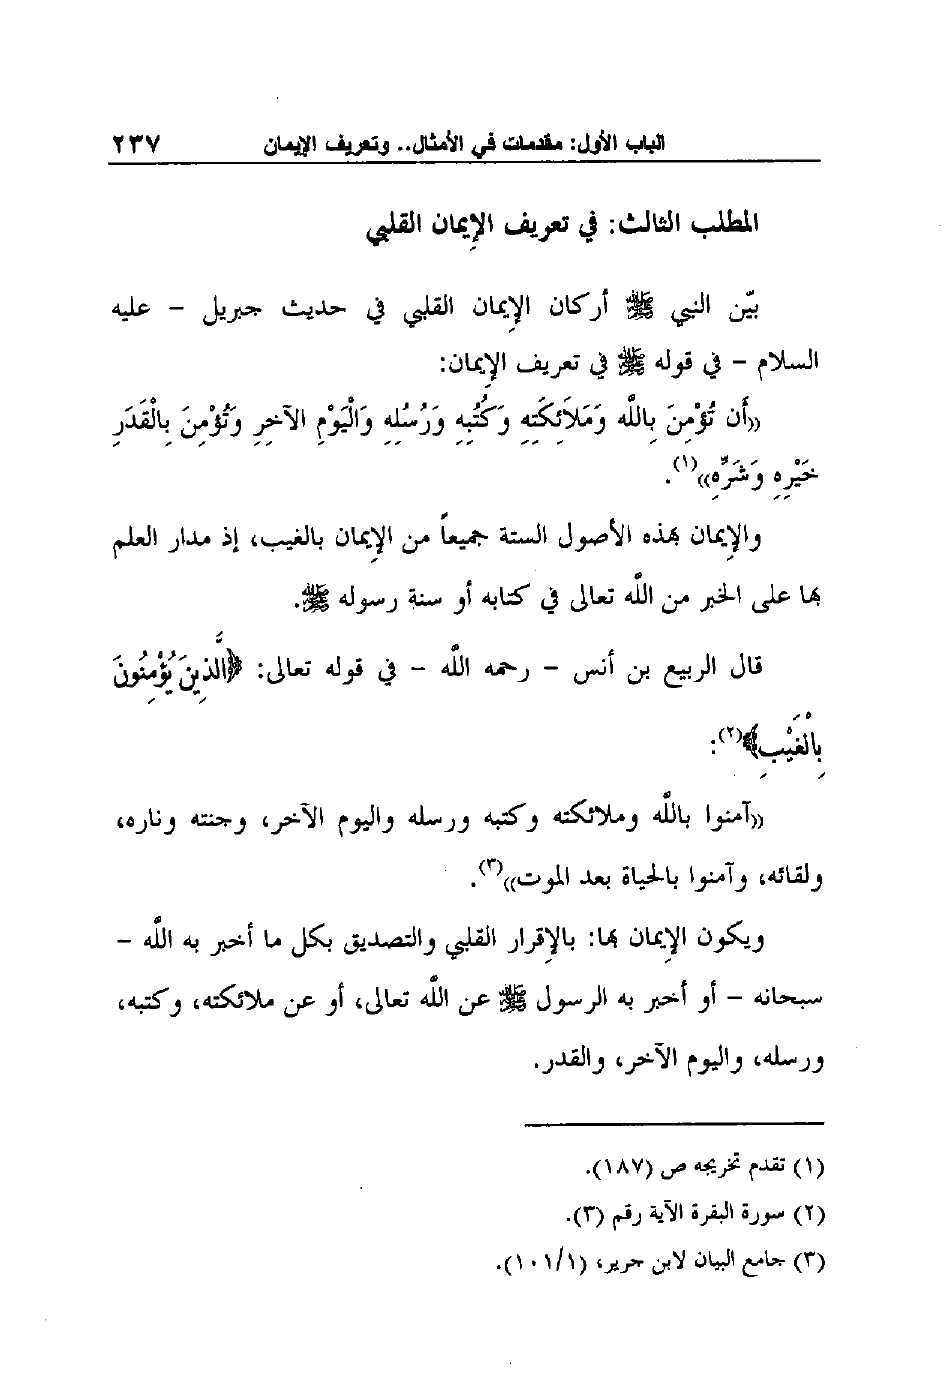 الباب الأول: مقدمات في الأمثال.. وتعريف الإيمان ٢٣٧
المطلب الثالث: في تعريف الإيمان القلبي
بيّن النبي ﷺ أركان الإيمان القلبي في حديث جبريل – عليه
السلام – في قوله ﷺ في تعريف الإيمان:
«أَن تُؤْمِنَ بِاللَّه وَمَلَائِكَتِهِ وَكُتُبِهِ وَرُسُلِهِ وَالْيَوْمِ الآخِرِ وَتُؤْمِنَ بِالْقَدَرِ
خَيْرِهِ وَشَرِّهِ»(١).
والإيمان بهذه الأصول الستة جميعاً من الإيمان بالغيب، إذ مدار العلم
بها على الخبر من اللَّه تعالى في كتابه أو سنة رسوله ﷺ.
قال الربيع بن أنس – رحمه اللَّه – في قوله تعالى: ﴿الَّذِينَ يُؤْمِنُونَ
بِالْغَيْبِ﴾(٢):
«آمنوا باللَّه وملائكته وكتبه ورسله واليوم الآخر، وجنته وناره،
ولقائه، وآمنوا بالحياة بعد الموت»(٣).
ويكون الإيمان بها: بالإقرار القلبي والتصديق بكل ما أخبر به اللَّه –
سبحانه – أو أخبر به الرسول ﷺ عن اللَّه تعالى، أو عن ملائكته، وكتبه،
ورسله، واليوم الآخر، والقدر.
(١) تقدم تخريجه ص (١٨٧).
(٢) سورة البقرة الآية رقم (٣).
(٣) جامع البيان لابن جرير، (١٠١/١).